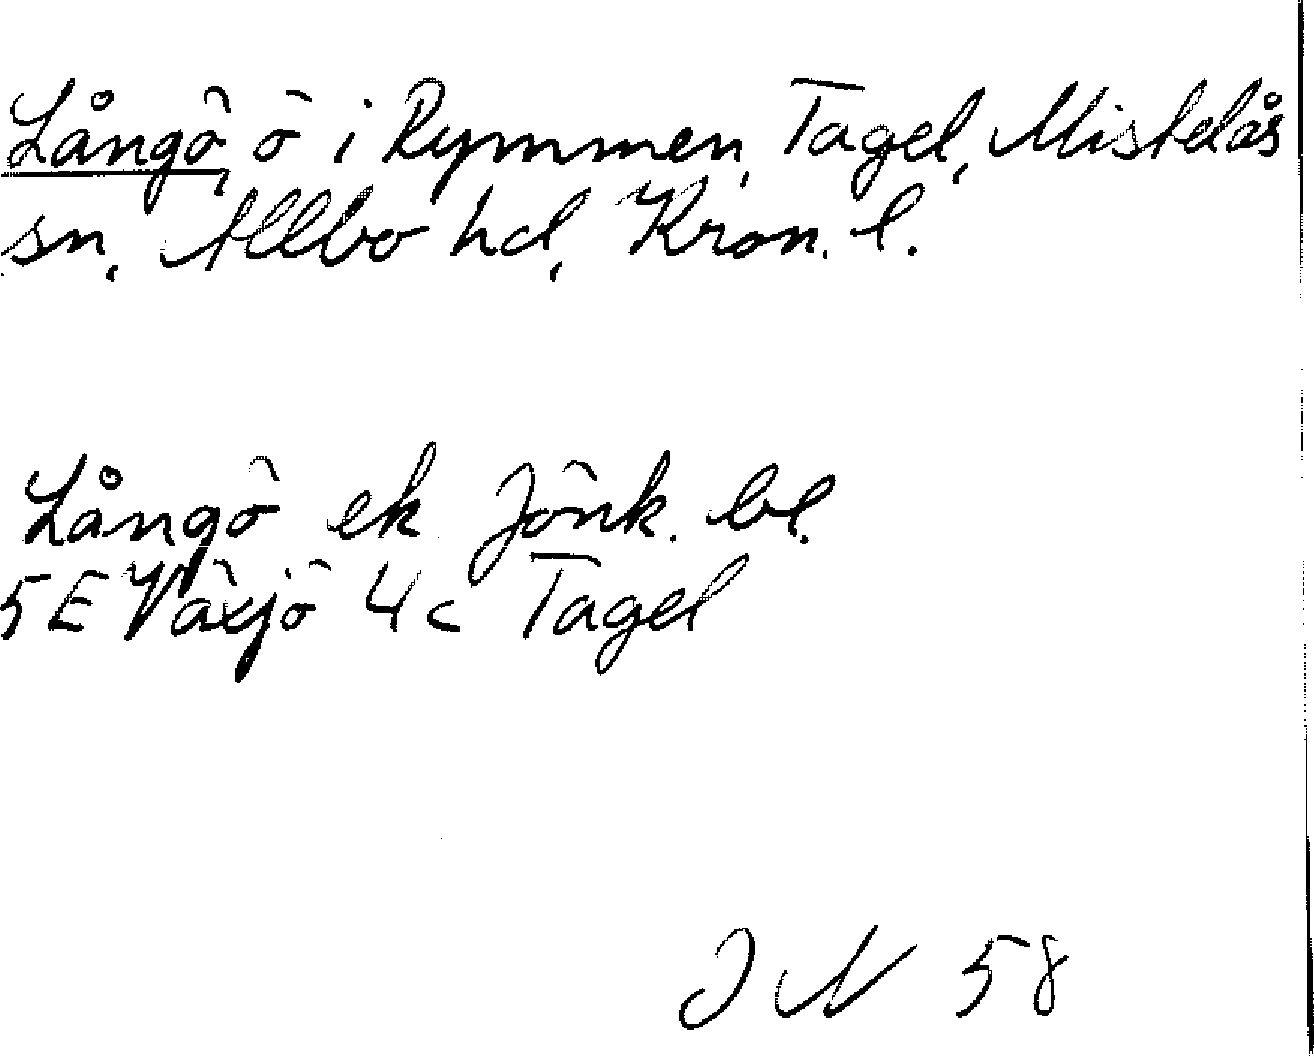 Långö, ö i Rymmen, Tagel, Mistelås
sn, Allbo hd, Kron. l.
Långö ek Jönk. bl.
5E Växjö 4c Tagel
JN 58